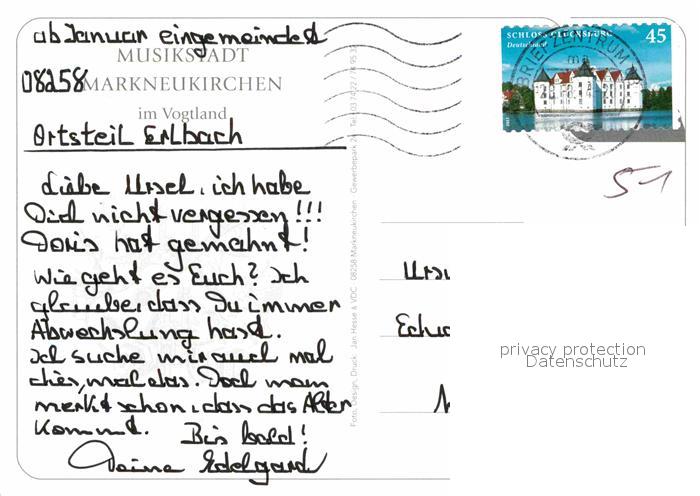 ab Januar eingemeindet
MUSIKSTADT
08258 MARKNEUKIRCHEN
im Vogtland
Ortsteil Erlbach
Liebe Ursel, ich habe
Dich nicht vergessen!!!
Doris hat gemahnt!
Wie geht es Euch? Ich
glaube, dass Du immer
Abwechslung hast.
Ich suche mir auch mal
dies, mal das. Doch man
merkt schon, dass das Alter
kommt. Bis bald!
Deine Edelgard
Foto, Design, Druck: Jan Hesse & VDC · 08258 Markneukirchen · Gewerbepark
SCHLOSS GLÜCKSBURG 45
Deutschland
BRIEFZENTRUM
51
privacy protection
Datenschutz